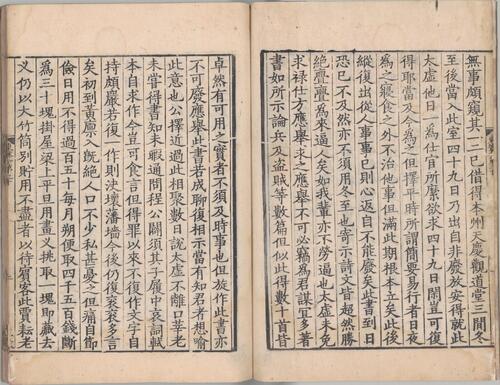 無事頗窺其一二已借得本州天慶觀道堂三間冬
至後當入此室四十九日乃出自非廢放安得就此
太虛他日一為仕宦所縻欲求四十九日閒豈可復
得耶當及今為之但擇平時所謂簡要易行者日夜
為之寢食之外不治他事但滿此期根本立矣此後
縱復出從人事事已則心返自不能廢矣此書到日
恐已不及然亦不須用冬至也寄示詩文皆超然勝
絕亹亹焉來逼人矣如我輩亦不勞逼也太虛未免
求祿仕方應舉求之應舉不可必竊為君謀宜多著
書如所示論兵及盜賊等數篇但似此得數十首皆
卓然有可用之實者不須及時事也但旋作此書亦
不可廢應舉此書若成聊復相示當有知君者想喻
此意也公擇近過此相聚數日說太虛不離口莘老
未嘗得書知未暇通問程公闢須其子履中哀詞軾
本自求作今豈可食言但得罪以來不復作文字自
持頗嚴若復一作則決壞藩牆今後仍復袞袞多言
矣初到黃廩入既絕人口不少私甚憂之但痛自節
儉日用不得過百五十每月朔便取四千五百錢斷
為三十塊掛屋梁上平旦用畫叉挑取一塊即藏去
叉仍以大竹筒別貯用不盡者以待賓客此賈耘老